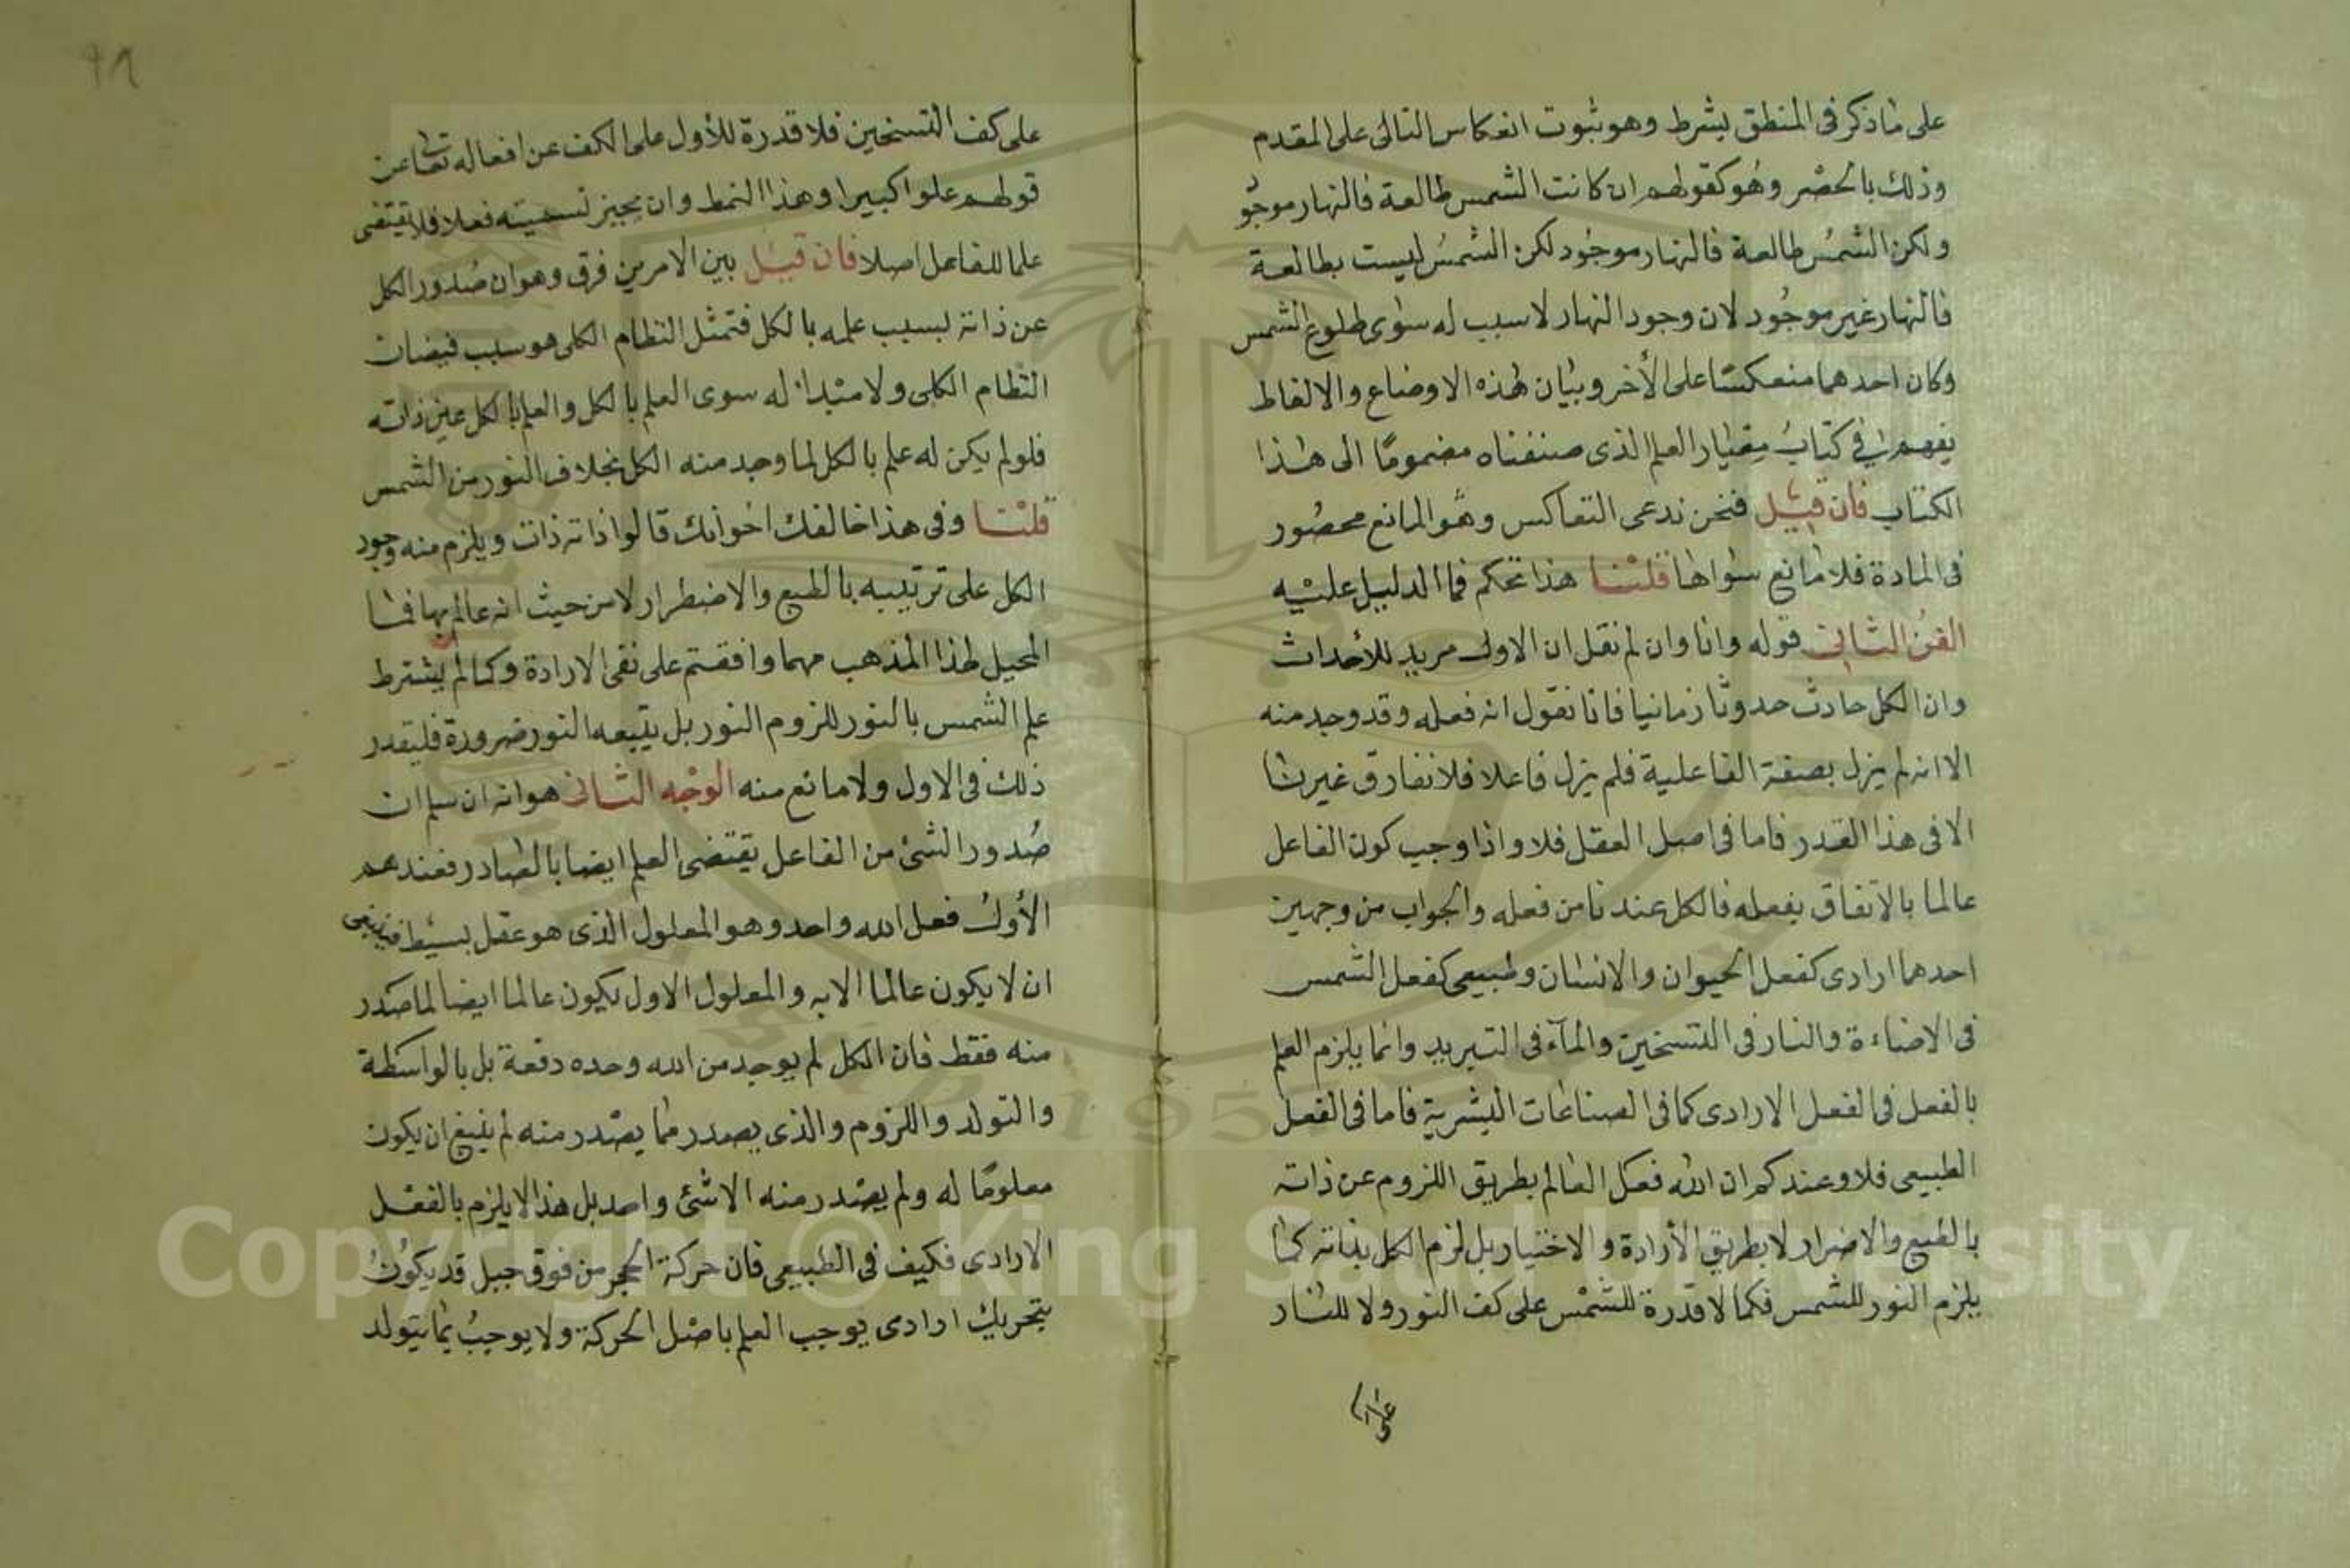 على ما ذكر فى المنطق بشرط وهو ثبوت انعكاس التالى على المقدم
وذلك بالحصر وهو كقولهم ان كانت الشمس طالعة فالنهار موجود
ولكن الشمس طالعة فالنهار موجود لكن الشمس ليست بطالعة
فالنهار غير موجود لان وجود النهار لا سبب له سوى طلوع الشمس
وكان احدهما منعكسا على الأخر وبيان هذه الاوضاع والالفاظ
يفهم فى كتاب معيار العلم الذى صنفناه مضموما الى هذا
الكتاب فان قيل فنحن ندعى التعاكس وهو المانع محصور
فى المادة فلا مانع سواها قلنا هذا تحكم فما الدليل عليه
الفن الثانى قوله وانا وان لم نقل ان الاول مريد للأحداث
وان الكل حادث حدوثا زمانيا فانا نقول انه فعله وقد وجد منه
الا انه لم يزل بصفة الفاعلية فلم يزل فاعلا فلا نفارق غيرنا
الا فى هذا القدر فاما فى اصل العقل فلا واذا وجب كون الفاعل
عالما بالاتفاق بفعله فالكل عندنا من فعله والجواب من وجهين
احدهما ارادى كفعل الحيوان والانسان وطبيعى كفعل الشمس
فى الاضاءة والنار فى التسخين والمآء فى التبريد وانما يلزم العلم
بالفعل فى الفعل الارادى كما فى الصناعات البشرية فاما فى الفعل
الطبيعى فلا وعندكم ان الله فعل العالم بطريق اللزوم عن ذاته
بالطبع والاضرار لا بطريق الأرادة والاختيار بل لزم الكل بذاته كما
يلزم النور للشمس فكما لا قدرة للشمس على كف النور ولا للنار
على
على كف التسخين فلا قدرة للأول على الكف عن افعاله تعا عن
قولهم علوا كبيرا وهذا النمط وان يجيز تسميته فعلا فلا يقتضى
علما للفاعل اصلا فان قيل بين الامرين فرق وهو ان صدور الكل
عن ذاته بسبب علمه بالكل فتمثل النظام الكلى هو سبب فيضان
النظام الكلى ولا مبدا له سوى العلم بالكل والعلم بالكل عين ذاته
فلو لم يكن له علم بالكل لما وجد منه الكل بخلاف النور من الشمس
قلنا وفى هذا خالفك اخوانك قالوا ذاته ذات ويلزم منه وجود
الكل على ترتيبه بالطبع والاضطرار لا من حيث انه عالم بها فما
المحيل لهذا المذهب مهما وافقتم على نفى الارادة وكما لم يشترط
علم الشمس بالنور للزوم النور بل يتبعه النور ضرورة فليقدر
ذلك فى الاول ولا مانع منه الوجه الثانى هو انه ان سلم ان
صدور الشئ من الفاعل يقتضى العلم ايضا بالصادر فعندهم
الأول فعل الله واحد وهو المعلول الذى هو عقل بسيط فينبغى
ان لا يكون عالما الا به والمعلول الاول يكون عالما ايضا لما صدر
منه فقط فان الكل لم يوجد من الله وحده دفعة بل بالواسطة
والتولد واللزوم والذى يصدر مما يصدر منه لم ينبغ ان يكون
معلوما له ولم يصدر منه الا شئ واحد بل هذا لا يلزم بالفعل
الارادى فكيف فى الطبيعى فان حركة الحجر من فوق جبل قد يكون
بتحريك ارادى يوجب العلم باصل الحركة ولا يوجب بما يتولد
Copyright © King Saud University